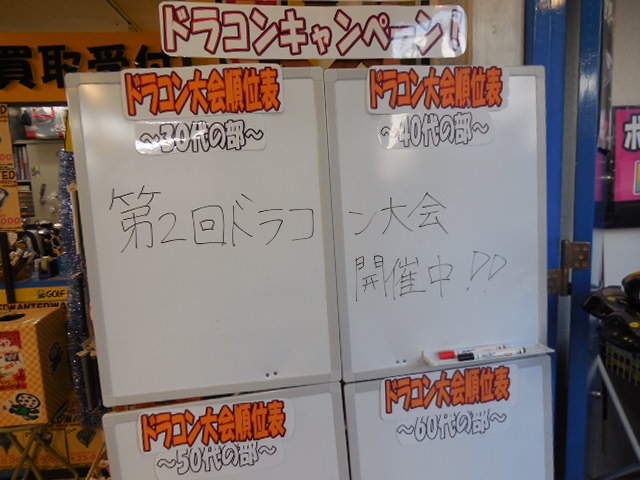 ドラコンキャンペーン!
買取受付
ドラコン大会順位表
～30代の部～
ドラコン大会順位表
～40代の部～
第2回ドラコン大会
開催中!!
ドラコン大会順位表
～50代の部～
ドラコン大会順位表
～60代の部～
GOLF